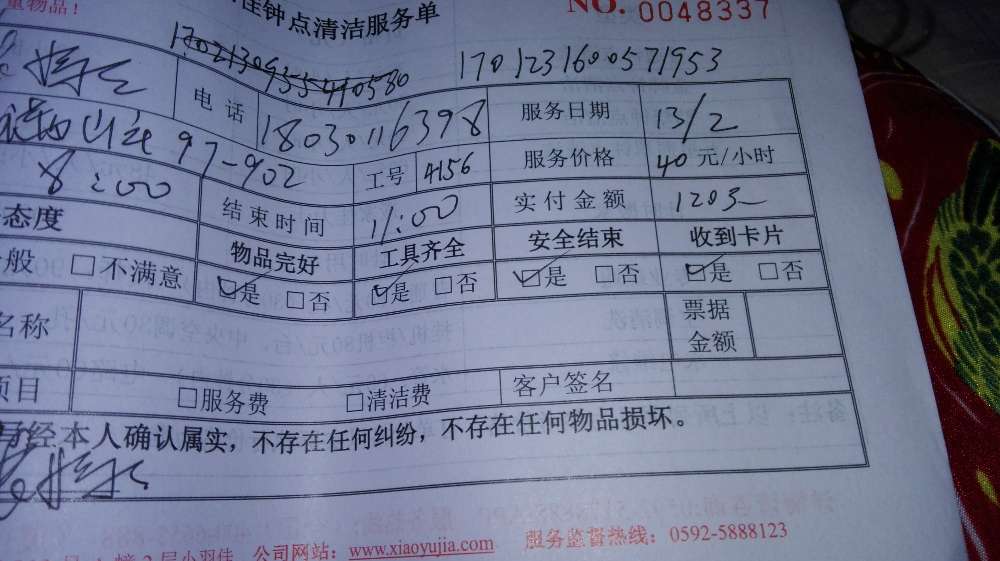 重物品!
佳钟点清洁服务单 NO. 0048337
17021309355410580 1701231600571953
电话 18030116398 服务日期 13/2
山庄 97-902 工号 4156 服务价格 40元/小时
8:00 结束时间 11:00 实付金额 120
态度 物品完好 工具齐全 安全结束 收到卡片
般 □不满意 ☑是 □否 ☑是 □否 ☑是 □否 ☑是 □否
名称 票据金额
项目 □服务费 □清洁费 客户签名
经本人确认属实，不存在任何纠纷，不存在任何物品损坏。
2层小羽佳 公司网站：www.xiaoyujia.com 服务监督热线：0592-5888123